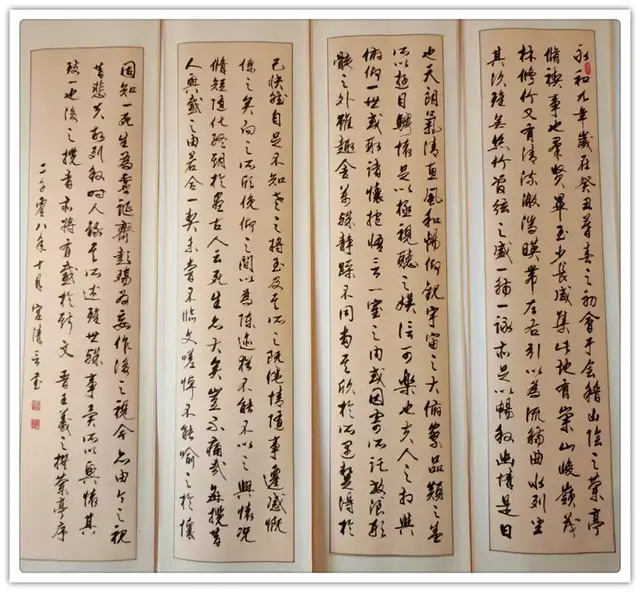 永和九年歲在癸丑暮春之初會于會稽山陰之蘭亭
脩禊事也羣賢畢至少長咸集此地有崇山峻嶺茂
林脩竹又有清流激湍暎帶左右引以為流觴曲水列坐
其次雖無絲竹管弦之盛一觴一詠亦足以暢敘幽情是日
也天朗氣清惠風和暢仰觀宇宙之大俯察品類之盛
所以遊目騁懷足以極視聽之娛信可樂也夫人之相與
俯仰一世或取諸懷抱悟言一室之內或因寄所託放浪形
骸之外雖趣舍萬殊靜躁不同當其欣於所遇蹔得於
己快然自足不知老之將至及其所之既倦情隨事遷感慨
係之矣向之所欣俛仰之間以為陳迹猶不能不以之興懷況
脩短隨化終期於盡古人云死生亦大矣豈不痛哉每攬昔
人興感之由若合一契未嘗不臨文嗟悼不能喻之於懷
固知一死生為虛誕齊彭殤為妄作後之視今亦由今之視
昔悲夫故列敘時人錄其所述雖世殊事異所以興懷其
致一也後之攬者亦將有感於斯文 晉王羲之撰蘭亭序
二千零八年十月